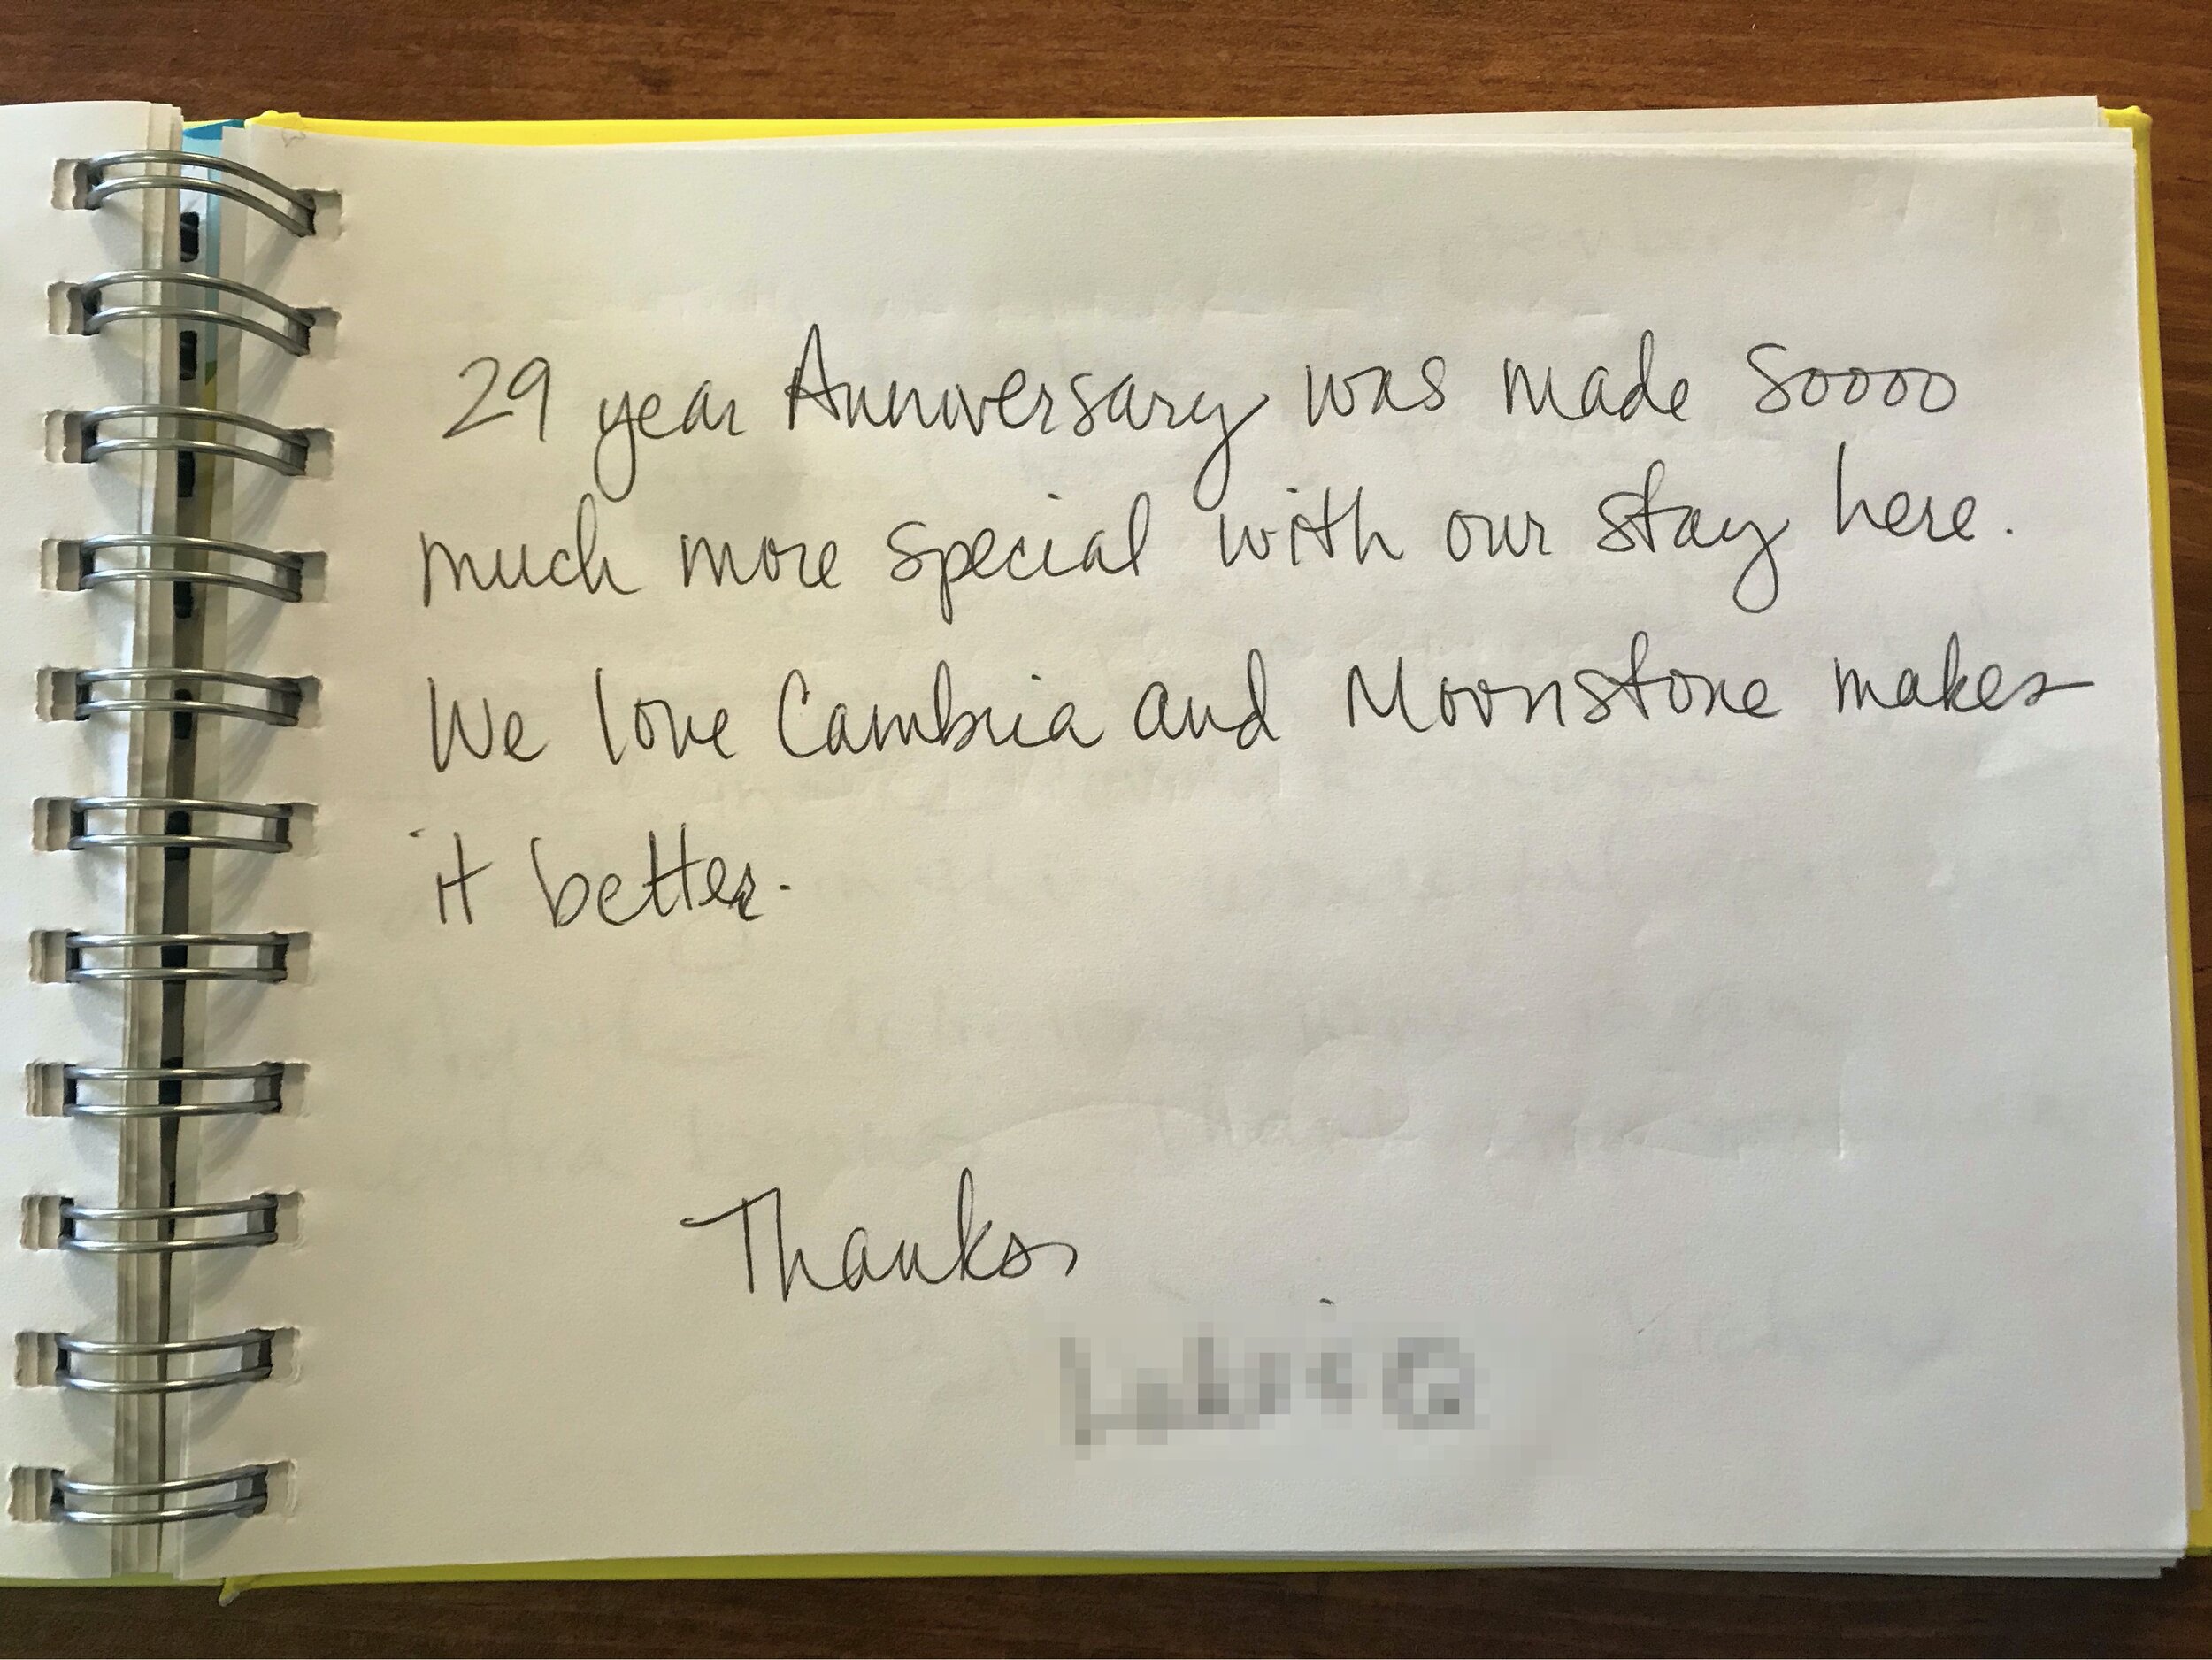 29 year Anniversary was made soooo
much more special with our stay here.
We love Cambria and Moonstone makes
it better.
Thanks,